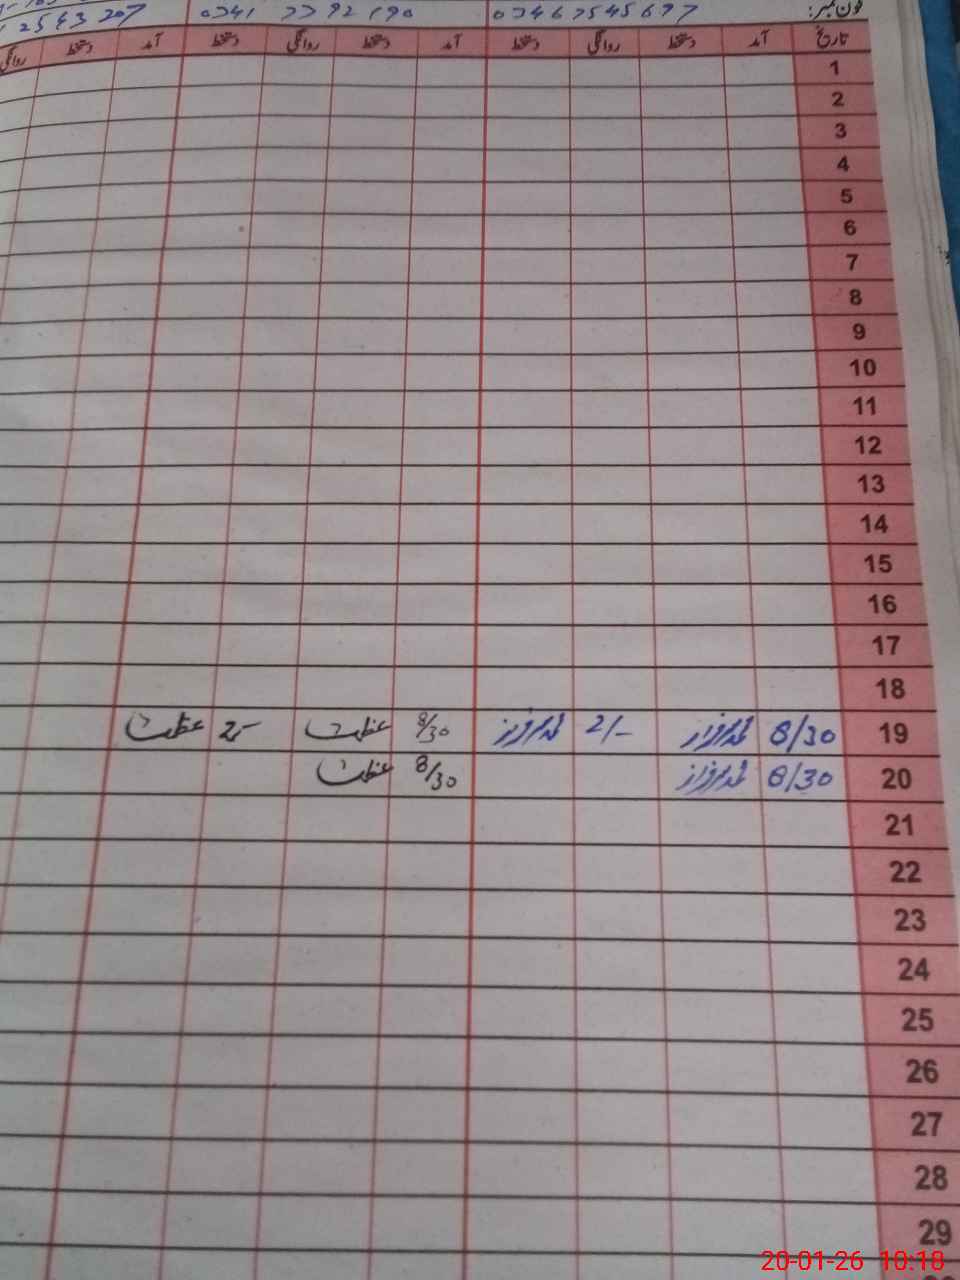 فون نمبر: 03467545697 0341 7792190 2543207
تاریخ آمد دستخط روانگی دستخط آمد دستخط روانگی دستخط آمد دستخط روانگی
1
2
3
4
5
6
7
8
9
10
11
12
13
14
15
16
17
18
19 8/30 2/- 8/30 عظمت 2/- عظمت
20 8/30 8/30 عظمت
21
22
23
24
25
26
27
28
29
20-01-26 10:18